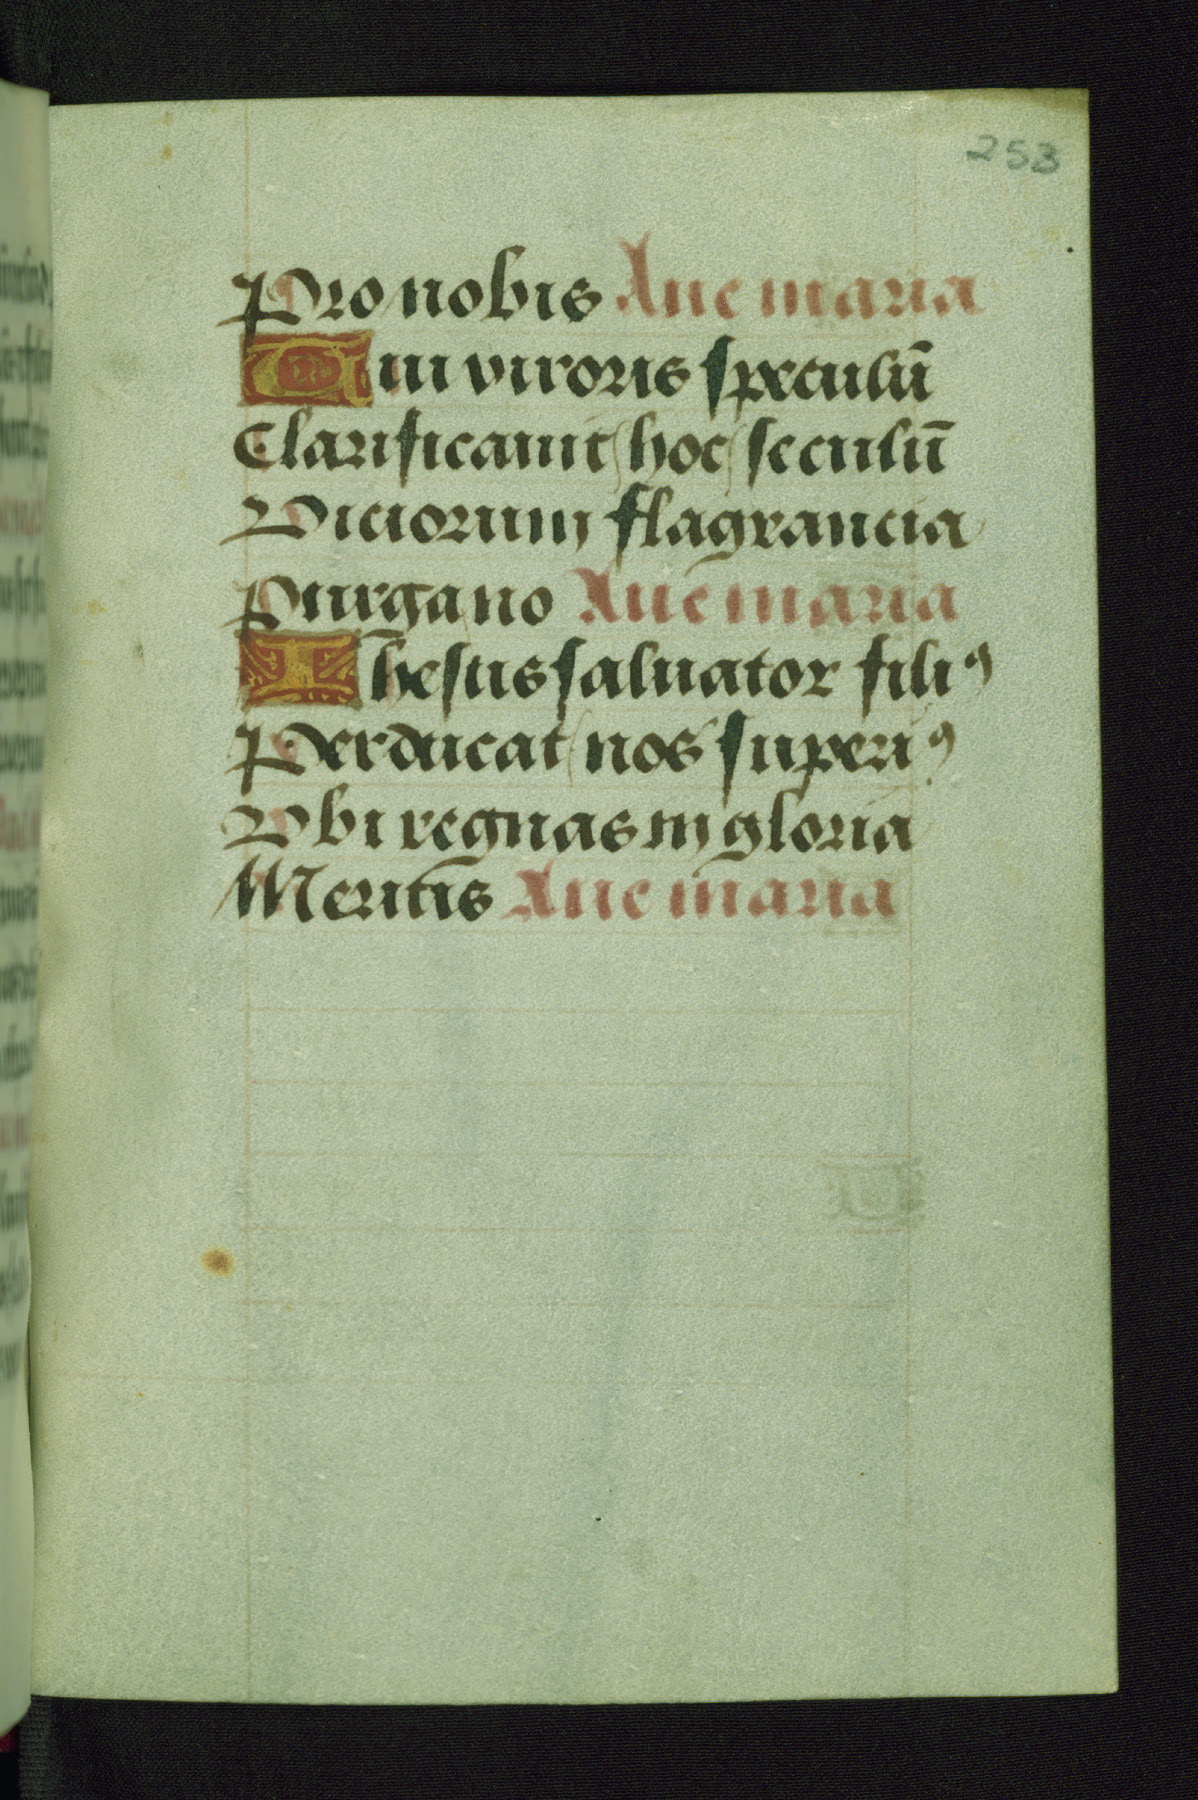 253
Pro nobis Aue maria
Qui viroris speculū
Clarificauit hoc seculū
Viciorum flagrancia
Purgano Aue maria
Ihesus saluator filiꝰ
Perducat nos superiꝰ
Vbi regnas in gloria
Meritis Aue maria